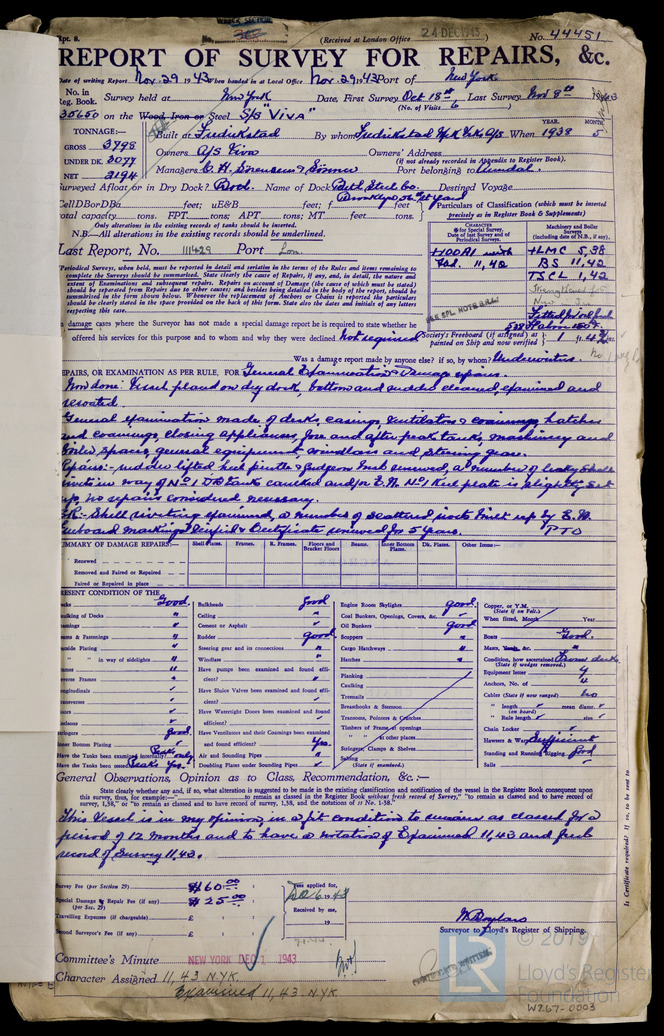 Rpt. 8.
(Received at London Office 24 DEC 1943
No. 44451
REPORT OF SURVEY FOR REPAIRS, &c.
Date of writing Report Nov. 29 1943 When handed in at Local Office Nov. 29 1943 Port of New York
No. in Reg. Book. Survey held at New York Date, First Survey Oct 18th Last Survey Nov 8th 1943
(No. of Visits 6
30650 on the Wood, Iron or Steel S/S "VIVA"
TONNAGE:—
GROSS 3798
UNDER DK. 3077
NET 2194
Built at Fredrikstad By whom Fredrikstad M/V A/S When 1938 5
YEAR. MONTH
Owners A/S Viva Owners' Address
(if not already recorded in Appendix to Register Book).
Managers O. H. Sorensen & Sonner Port belonging to Arendal
Surveyed Afloat or in Dry Dock? Both. Name of Dock Beth Steel Co. Destined Voyage
Brooklyn 56th St Yard
CellDBorDBa feet; uE&B feet; f feet
total capacity tons. FPT tons; APT tons; MT feet tons.
Only alterations in the existing records of tanks should be inserted.
N.B.—All alterations in the existing records should be underlined.
Particulars of Classification (which must be inserted precisely as in Register Book & Supplements)
CHARACTER for Special Survey, Date of last Survey and of Periodical Surveys.
Machinery and Boiler Surveys (including date of N.B., if any).
+100A1 with
fbd. 11,42
+LMC 5,38
BS 11,42
TSCL 1,42
Fitted for oil fuel
Last Report, No. 111429 Port Lon.
Periodical Surveys, when held, must be reported in detail and seriatim in the terms of the Rules and items remaining to complete the Survey should be summarized. State clearly the cause of Repairs, if any, and, in detail, the nature and extent of Examinations and subsequent repairs. Repairs on account of Damage (the cause of which must be stated) should be separated from Repairs due to other causes; and besides being detailed in the body of the report, should be summarized in the form shown below. Whenever the replacement of Anchors or Chains is reported the particulars should be clearly stated in the space provided on the back of this form. State also the dates and initials of any letters respecting this case.
In damage cases where the Surveyor has not made a special damage report he is required to state whether he
offered his services for this purpose and to whom and why they were declined Not required
Society's Freeboard (if assigned) as painted on Ship and now verified
Was a damage report made by anyone else? if so, by whom? Underwriters.
REPAIRS, OR EXAMINATION AS PER RULE, FOR General Examination & Damage repairs.
Now done: Vessel placed on dry dock, bottom and rudder cleaned, examined and
recoated.
General examination made of decks, casings, ventilators & coamings, hatches
and coamings, closing appliances, fore and after peak tanks, machinery and
boiler spaces, general equipment, windlass and steering gear.
Repairs:- rudder lifted heel pintle & gudgeon bush renewed, a number of leaky shell
rivets in way of No 1 DB tanks caulked and/or E.W. No 1 Keel plate is slightly set
up, no repairs considered necessary.
F.R:- Shell riveting examined, a number of scattered rivets built up by E.W.
Freeboard markings verified & Certificate renewed for 5 years. PTO
SUMMARY OF DAMAGE REPAIRS:—
Shell Plates. Frames. R. Frames. Floors and Bracket Floors Beams. Inner Bottom Plates. Dk. Plates. Other Items:—
Renewed
Removed and Faired or Repaired
Faired or Repaired in place
PRESENT CONDITION OF THE
Decks Good
Caulking of Decks "
Coamings "
Beams & Fastenings "
Outside Plating "
" " in way of sidelights "
Frames "
Reverse Frames "
Longitudinals
Transverses
Floors
Keelsons
Stringers Good
Inner Bottom Plating
Have the Tanks been examined internally? Peaks only
Have the Tanks been tested? Peaks Yes
Bulkheads Good
Ceiling "
Cement or Asphalt
Rudder Good
Steering gear and its connections "
Windlass "
Have pumps been examined and found efficient?
Have Sluice Valves been examined and found efficient?
Have Watertight Doors been examined and found efficient?
Have Ventilators and their Coamings been examined and found efficient? Yes.
Air and Sounding Pipes
Doubling Plates under Sounding Pipes
Engine Room Skylights Good
Coal Bunkers, Openings, Covers, &c.
Oil Bunkers Good
Scuppers "
Cargo Hatchways "
Hatches "
Planking
Caulking
Treenails
Breasthooks & Stemson
Transoms, Pointers & Crutches
Timbers of Frame at openings
" " at other places
Stringers, Clamps & Shelves
Salting
(State if examined.)
Copper, or Y.M.
(State if on Felt.)
When fitted, Month Year
Boats Good.
Masts, Yards, &c. "
Condition, how ascertained From deck
(State if wedges removed.)
Equipment letter
Anchors, No. of
Cables (State if now ranged) No
" length (on board) mean diamr.
" Rule length size
Chain Locker
Hawsers & Warps Sufficient
Standing and Running Rigging Good
Sails
General Observations, Opinion as to Class, Recommendation, &c.:—
State clearly whether any and, if so, what alteration is suggested to be made in the existing classification and notification of the vessel in the Register Book consequent upon this survey, thus, for example:—
This Vessel is in my opinion, in a fit condition to remain as classed for a
period of 12 months and to have a notation of Examined 11,43 and fresh
record of Survey 11,43.
Survey Fee (per Section 29) $60.00
Special Damage & Repair Fee (if any) (per Sec. 29) $25.00
Travelling Expenses (if chargeable) £ : :
Second Surveyor's Fee (if any) £ : :
Fees applied for,
Dec 6 1943
Received by me,
19
Surveyor to Lloyd's Register of Shipping.
Committee's Minute NEW YORK DEC 1 1943
Character Assigned 11,43 N.YK
Examined 11,43 N.YK
CERTIFICATE WRITTEN
Is Certificate required? If so, to be sent to
© 2019
LR
Lloyd's Register
Foundation
W267-0003